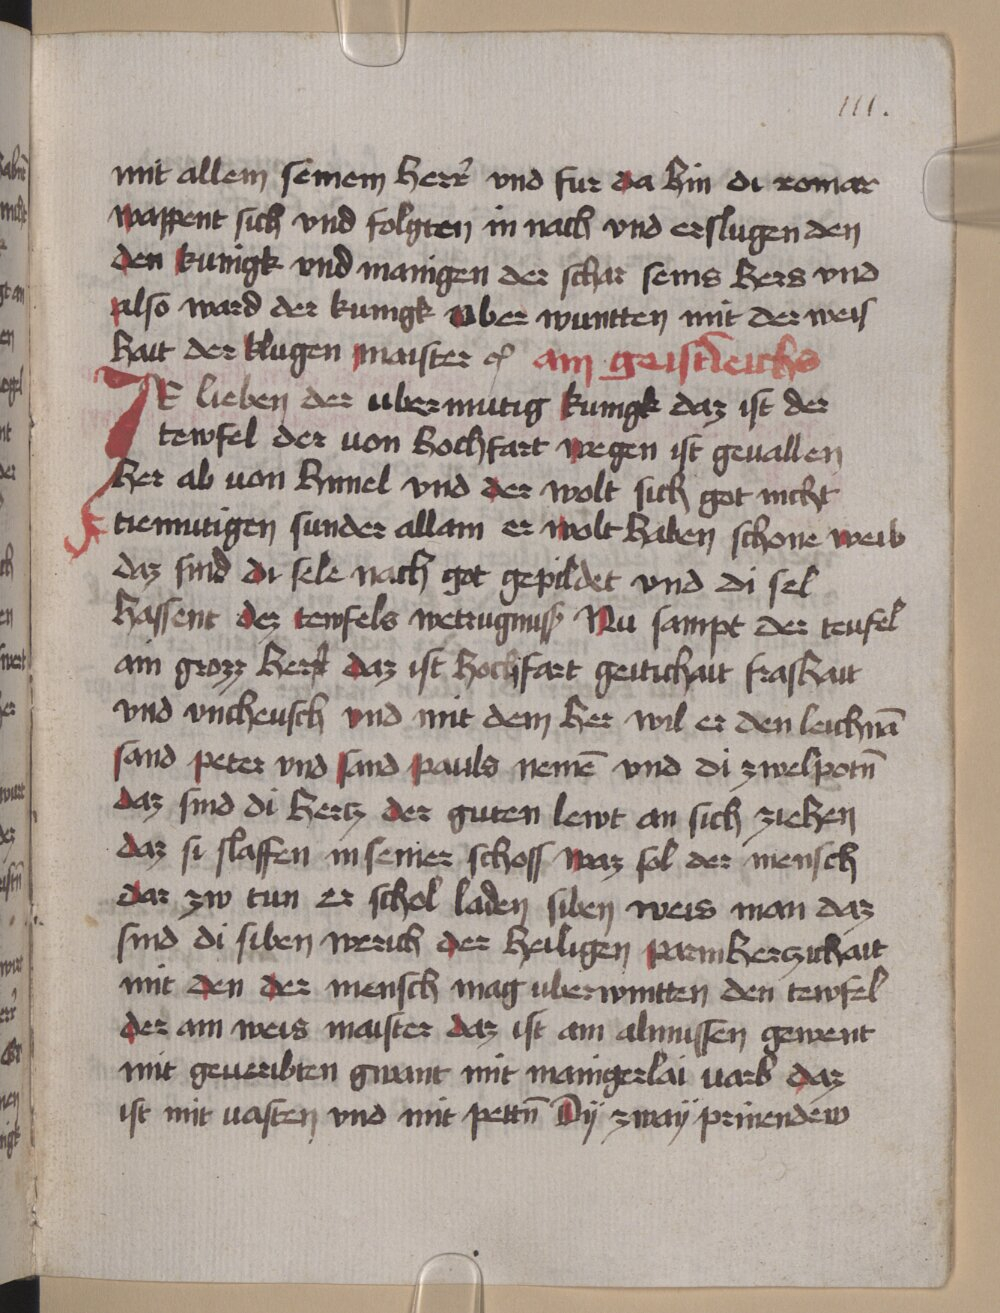 III.
mit allem seinem herr̄ vnd fur da hin di romar
wappent sich vnd folgten in nach vnd erslugen den
den kunigk vnd manigen der schar seins hers vnd
also ward der kunigk vber wuntten mit der weis
hait der klugen maister ain geistleichs
IR lieben der ubermutig kunigk daz ist der
tewfel der von hochfart wegen ist geuallen
her ab von himel vnd der wolt sich got nicht
diemutigen sunder allain er wolt haben schone weib
daz sind di sele nach got gepildet vnd di sel
hassent dez tewfels wetrugnuss Nu sampt der teufel
ain grozz herr daz ist hochfart geitichait frashait
vnd vncheusch vnd mit dem her wil er den leichnā
sand peter vnd sand pauls nemē vnd di zwelpotn̄
daz sind di hertz der guten lewt an sich ziehen
daz si slaffen in seiner schoss waz sol der mensch
dar zw tun er schol laden siben weis man daz
sind di siben werich der heiligen parmhertzichait
mit den der mensch mag uberwintten den tewfel
der ain weis maister daz ist ain almussen gewent
mit geueribten gwant mit manigerlai varb daz
ist mit vasten vnd mit pettn̄ Dÿ zwaÿ prinendew